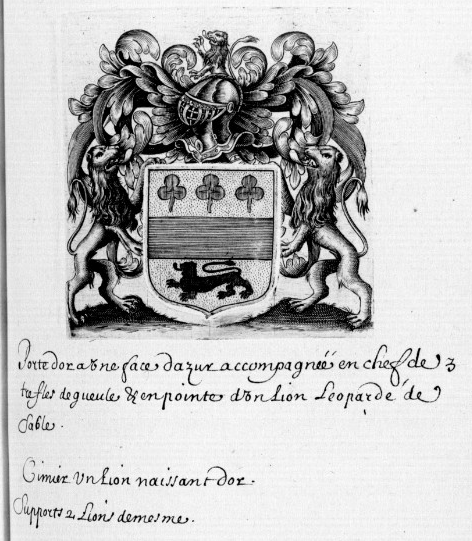 Porte dor a vne face dazur accompagneé en chef de 3
trefles de gueule & en pointe d'vn Lion Leopardé de
sable.
Cimier vn Lion naissant dor.
Supports 2 Lions demesme.